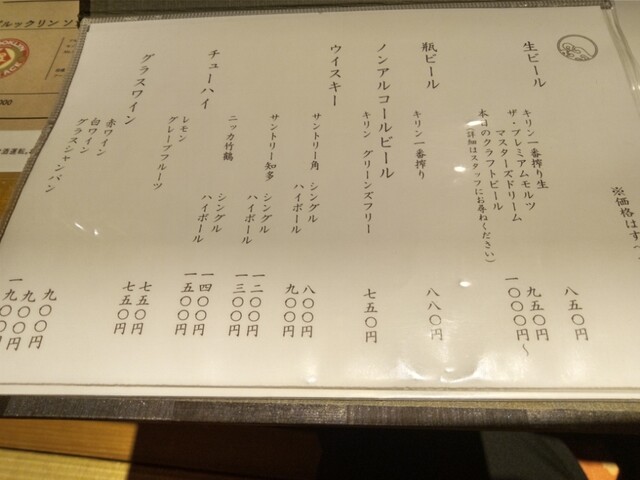 ※価格はすべ
生ビール
キリン一番搾り生
八五〇円
ザ・プレミアムモルツ
マスターズドリーム
九五〇円
本日のクラフトビール
一〇〇〇円〜
(詳細はスタッフにお尋ねください)
瓶ビール
キリン一番搾り
八八〇円
ノンアルコールビール
キリン グリーンズフリー
七五〇円
ウイスキー
サントリー角
シングル
八〇〇円
ハイボール
九〇〇円
サントリー知多
シングル
一二〇〇円
ハイボール
一三〇〇円
ニッカ竹鶴
シングル
一四〇〇円
ハイボール
一五〇〇円
チューハイ
レモン
七五〇円
グレープフルーツ
七五〇円
グラスワイン
赤ワイン
九〇〇円
白ワイン
九〇〇円
グラスシャンパン
一九〇〇円
ブルックリン ソ